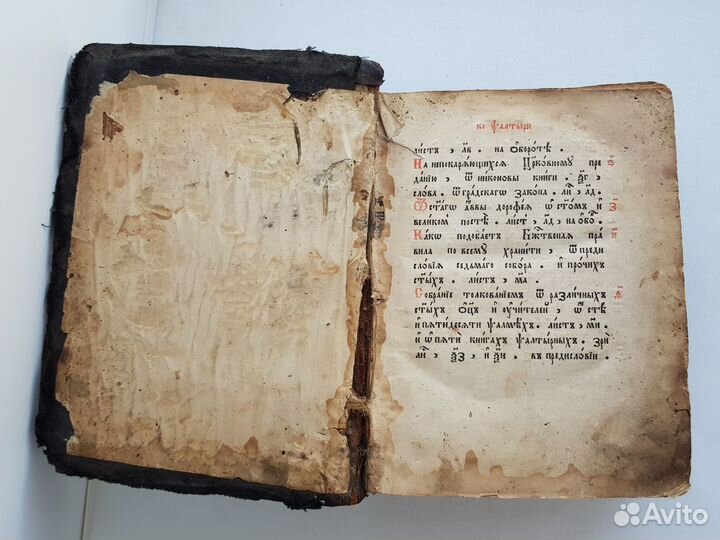 ко ѱалтыри
листъ , лв҃ . на ѻборотѣ .
На непокаряющихся цр҃ковному пре
данїю , ѿ никоновы книги . ѯ҃г .
слова . ѿ градскагѡ зако́на . ли́ , л҃д .
Ѿ ст҃агѡ а҆ввы дорофея ѡ ст҃ѣмъ и҆
великомъ постѣ . листъ , л҃д , на ѻбо .
Како подобаетъ бж҃твеная пра
вила по всему храни́ти , ѿ преди
словїя седьмаго собора . и҆ про́чихъ
ст҃ыхъ . листъ , м҃а .
Собранїе толкованїемъ ѿ разли́чныхъ
ст҃ыхъ ѻ҆ц҃ъ и҆ ѹ҆чителеи , ѡ стѣ
и҆ пяти́десяти ѱалмѣхъ . листъ , м҃и .
и҆ ѡ пяти книгахъ ѱалты́рныхъ . зрѝ
ли́ , ѯ҃з , и҆ ѯ҃и . въ предисловїи .
з҃
и҃
Avito